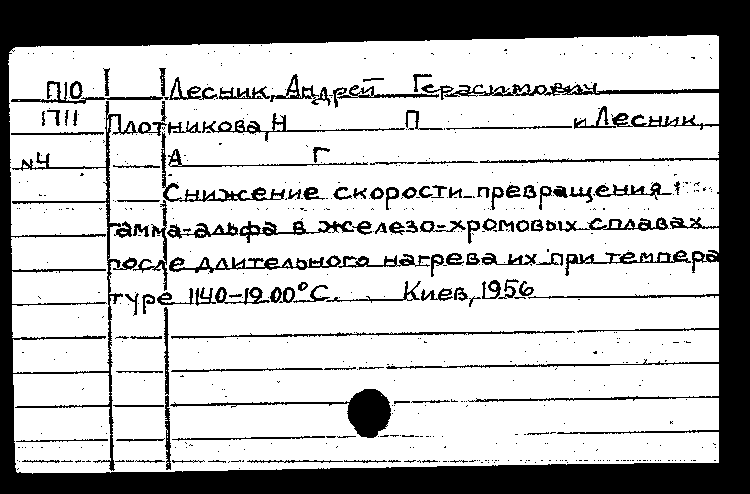 П10 Лесник, Андрей Герасимович
1711 Плотникова, Н П и Лесник,
N4 А Г
Снижение скорости превращения
гамма-альфа в железо-хромовых сплавах
после длительного нагрева их при темпера
туре 1140-1200°С. Киев, 1956